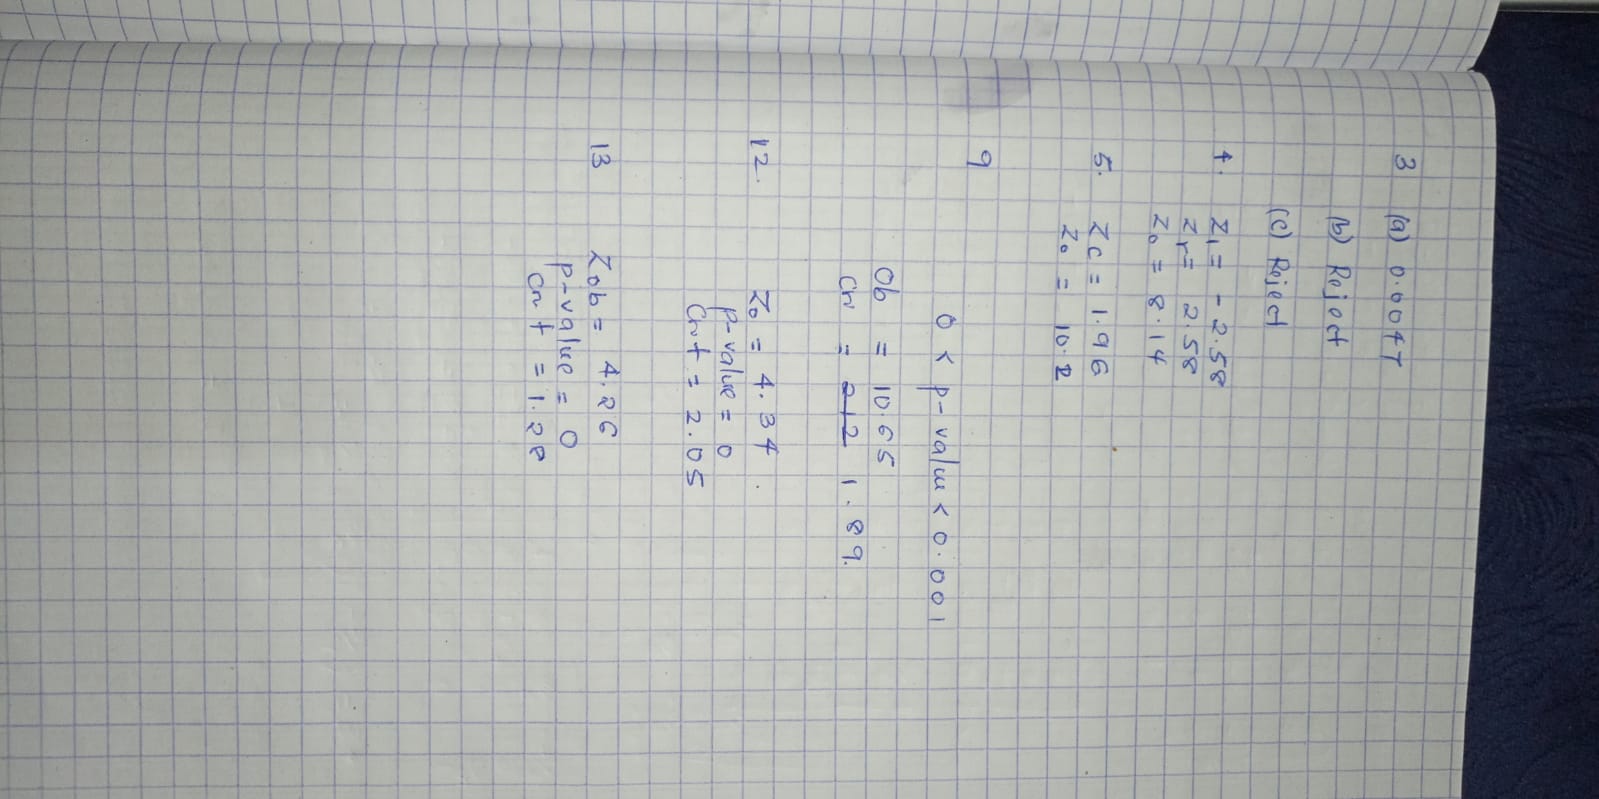 3 (a) 0.0047
(b) Reject
(c) Reject
4. Z₁ = -2.58
Zr = 2.58
Z₀ = 8.14
5. Zc = 1.96
Z₀ = 10.2
9
0 < p-value < 0.001
Ob = 10.65
Cri = 2.12 1.89.
12. Z₀ = 4.34
p-value = 0
Crit = 2.05
13 Zob = 4.26
p-value = 0
Crit = 1.28